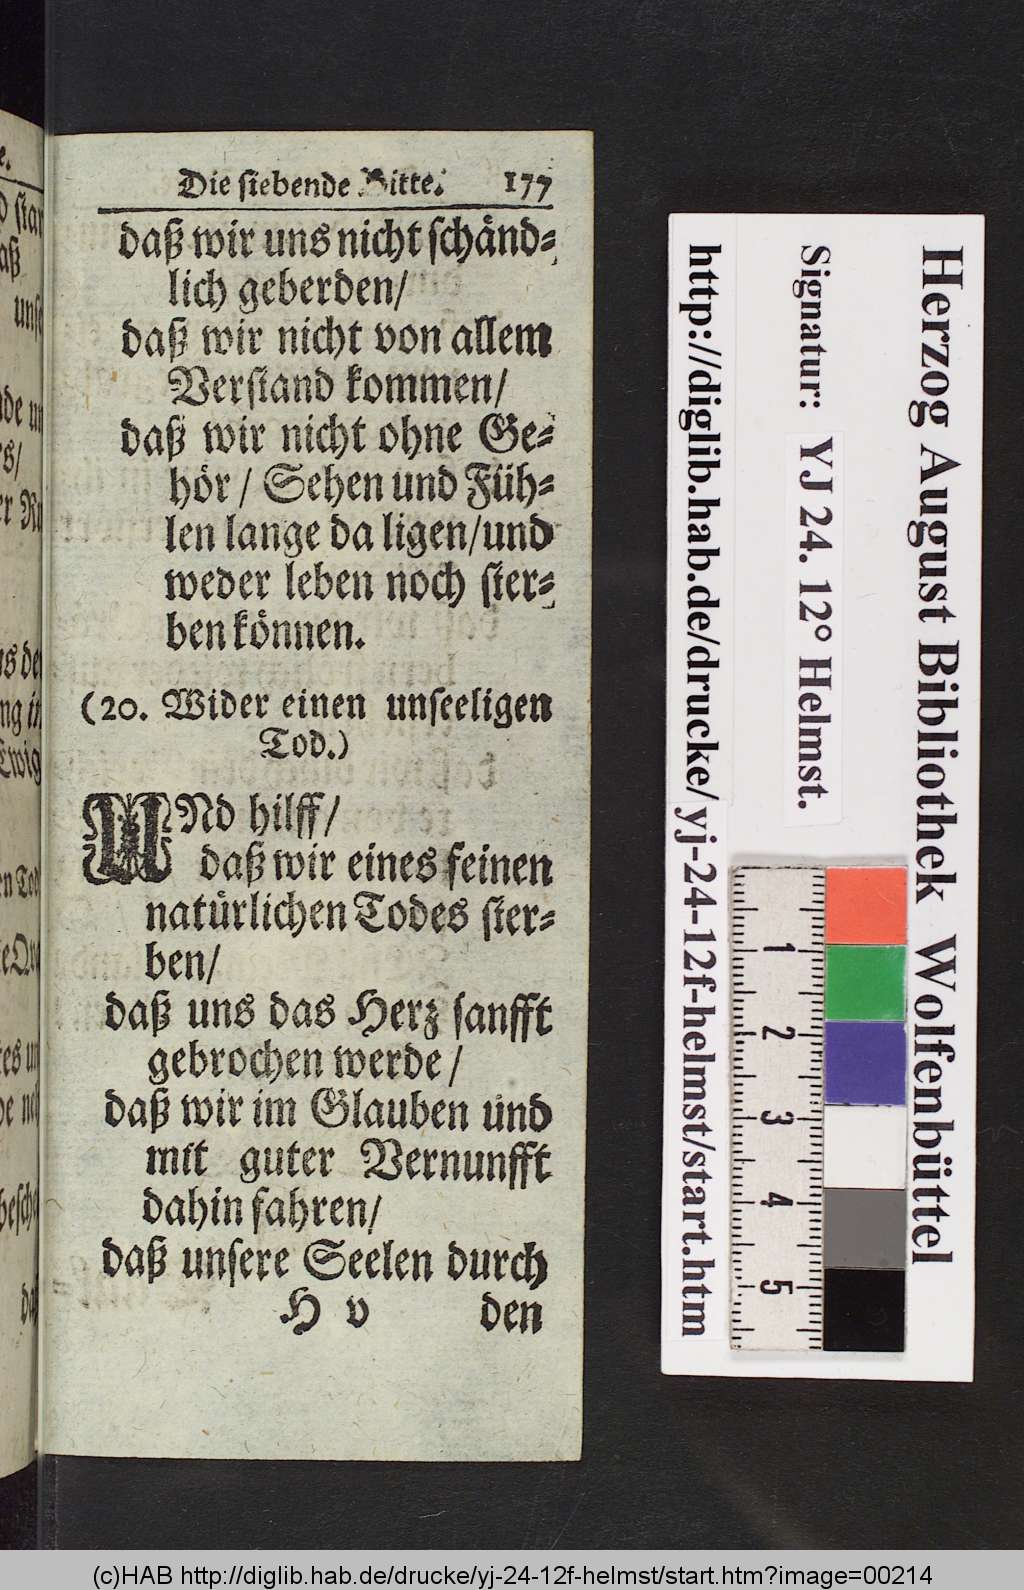 Die siebende Bitte. 177
daß wir uns nicht schänd-
lich geberden/
daß wir nicht von allem
Verstand kommen/
daß wir nicht ohne Ge-
hör / Sehen und Füh-
len lange da ligen/und
weder leben noch ster-
ben können.
(20. Wider einen unseeligen
Tod.)
UNd hilff/
daß wir eines feinen
natürlichen Todes ster-
ben/
daß uns das Herz sanfft
gebrochen werde /
daß wir im Glauben und
mit guter Vernunfft
dahin fahren/
daß unsere Seelen durch
H v den
Herzog August Bibliothek Wolfenbüttel
Signatur: YJ 24. 12° Helmst.
http://diglib.hab.de/drucke/yj-24-12f-helmst/start.htm
1
2
3
4
5
(c)HAB http://diglib.hab.de/drucke/yj-24-12f-helmst/start.htm?image=00214